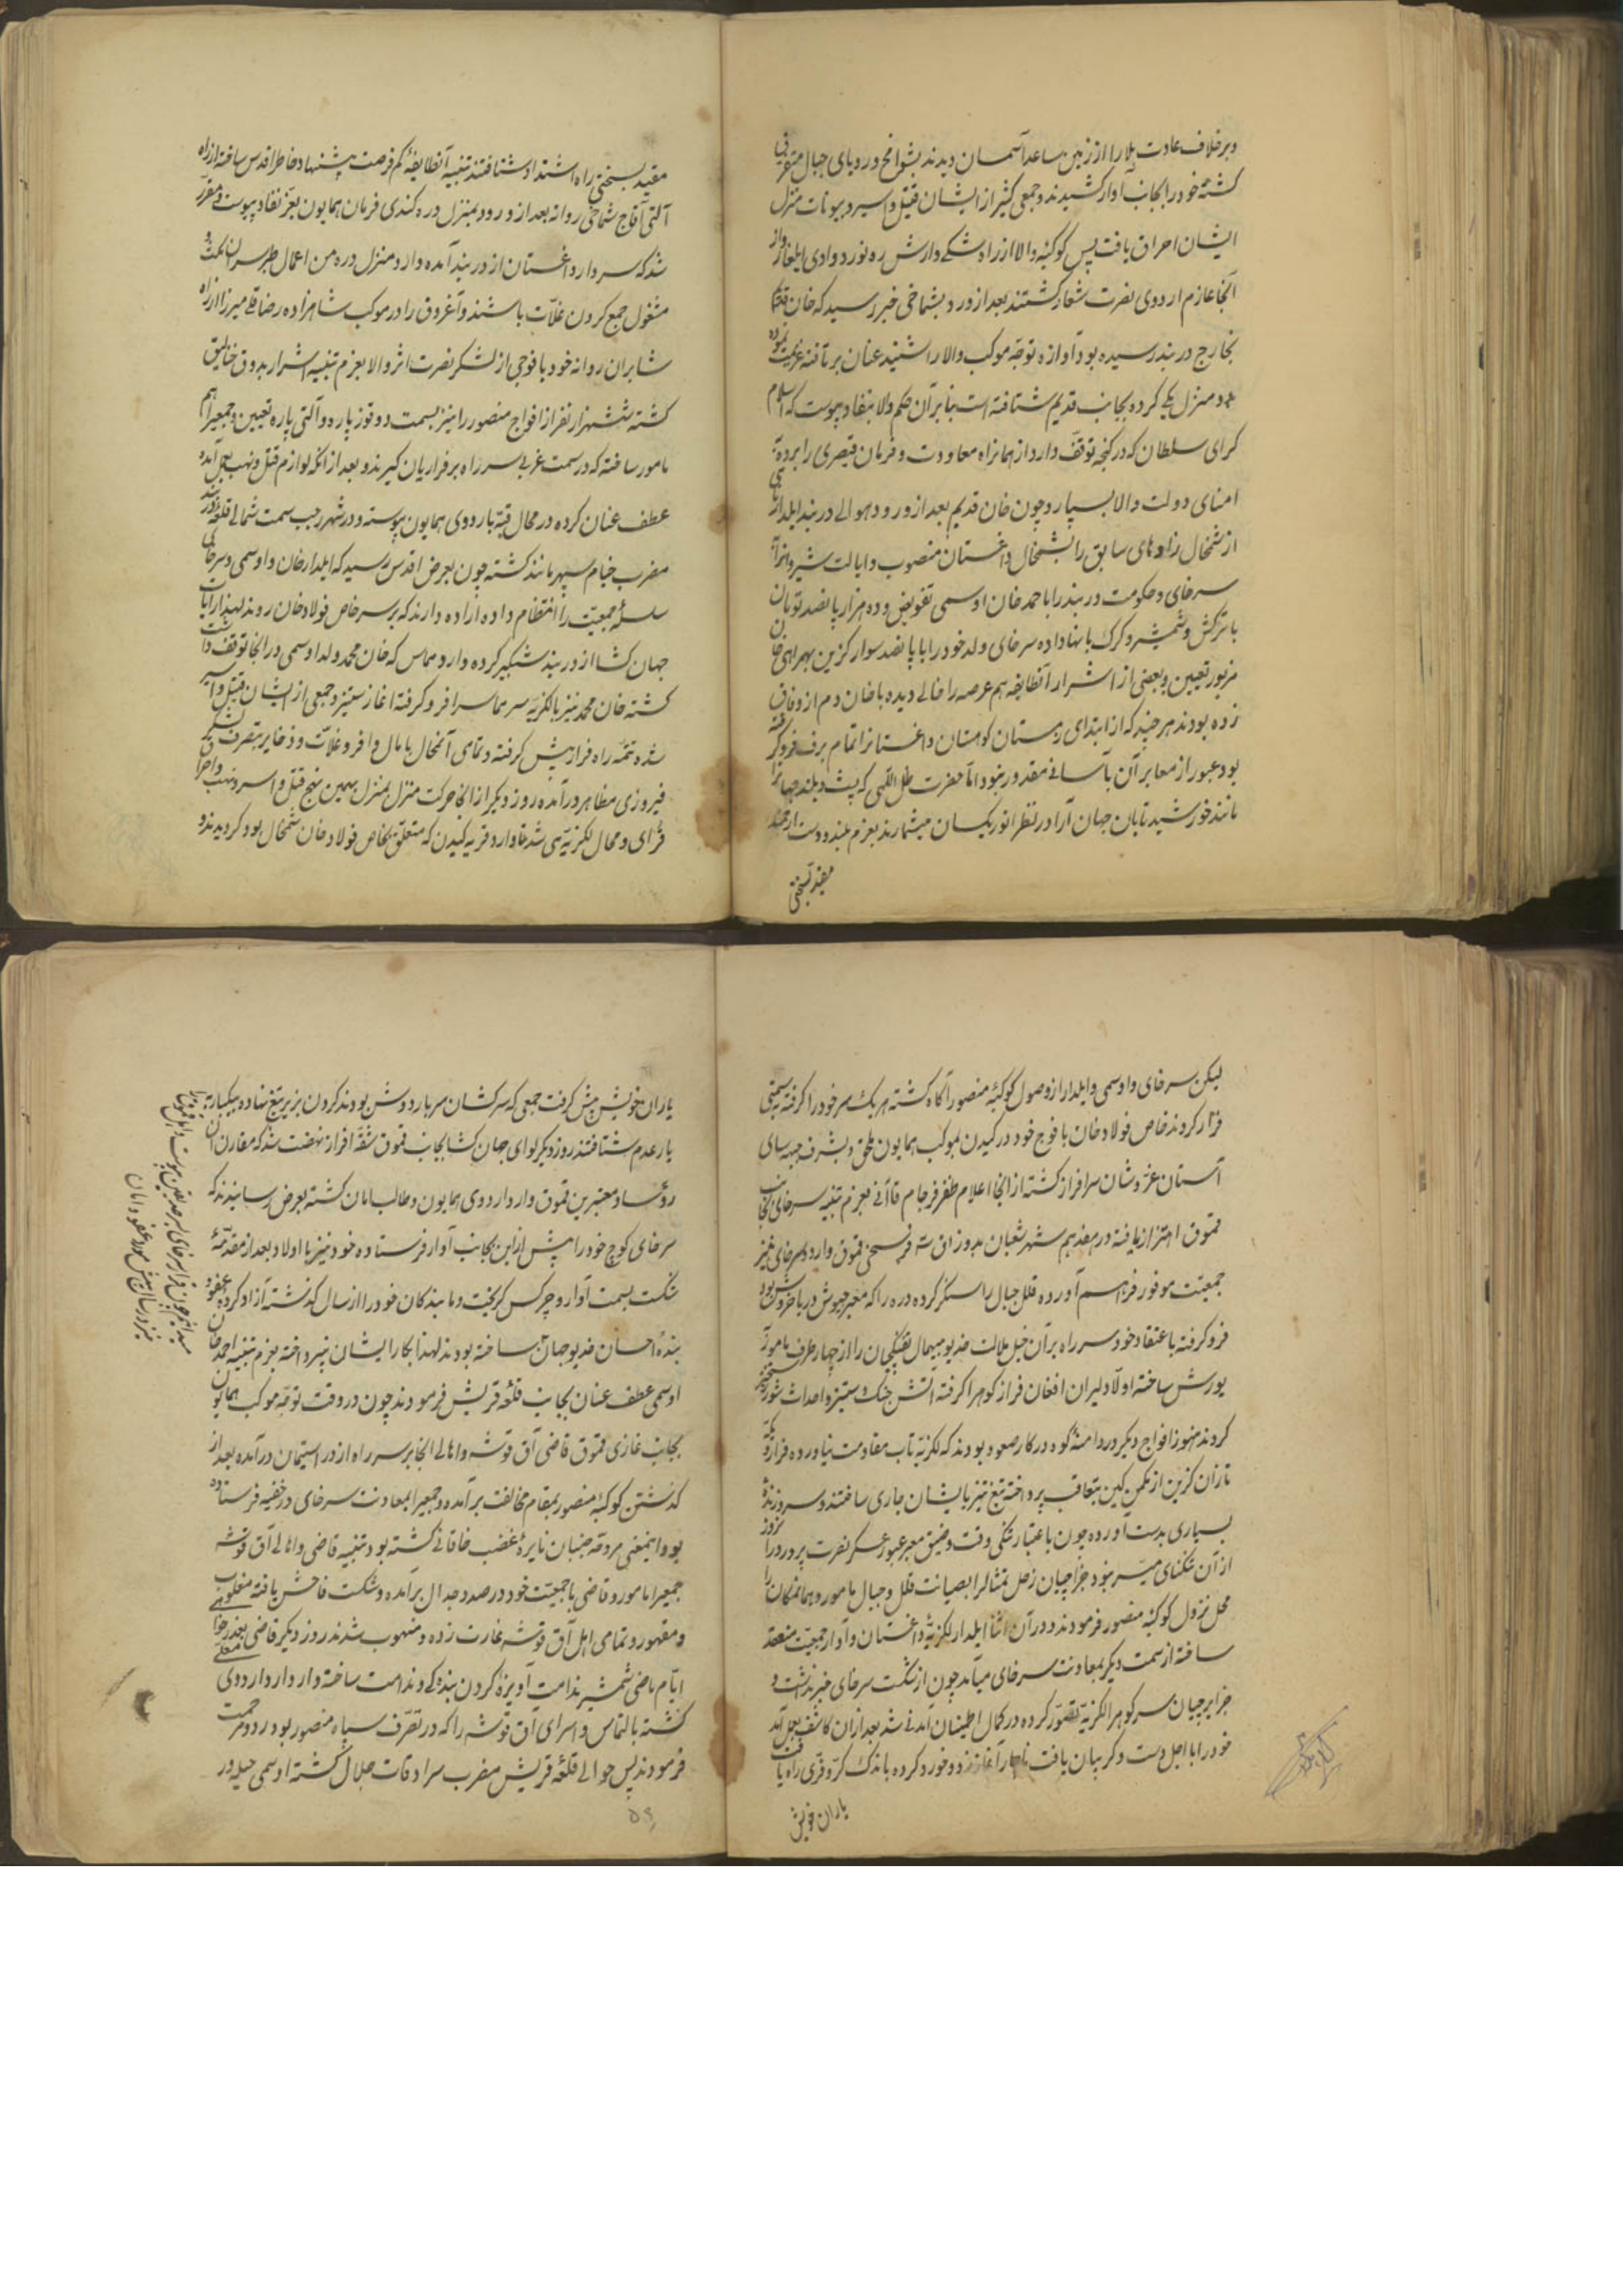 وبرخلاف عادت بلا را از زمین ساعد آسمان دیدند بشوامخ و روبای جبال متفرق
کشته خود را بجانب آوار کشیدند و جمعی کثیر از ایشان قتیل و اسیر و بیوتات منزل
ایشان احراق یافت پس کوکبه والا از راه شکی و ارش ره نورد وادی ایلغار و از
آنجا عازم اردوی نصرت شعار کشتند بعد از ورود بشماخی خبر رسید که خان قدیم
بخارج دربند رسیده بود آوازه توجه موکب والا را شنیده عنان برتافته عزیمت نموده
دو منزل یکی کرده بجانب قدیم شتافته است بنابر آن حکم والا بنفاد پیوست که اسلام
کرای سلطان که در کنجه توقف دارد از همانراه معاودت و فرمان قیصری را برده
امنای دولت والا بسپارد و چون خان قدیم بعد از ورود بحوالی دربند ایلدار
از شمخال زادهای سابق را بشمخالی داغستان منصوب و ایالت شیروانرا
سرخای و حکومت دربند را باحمد خان اوسمی تفویض و ده هزار پانصد تومان
با ترکش و شمشیر و کرک بانها داده سرخای ولد خود را با پانصد سوار کزین بهمراهی خان
مزبور تعیین و بعضی از اشرار آنطایفه هم عرصه را خالی دیده با خان دم از وفاق
زده بودند هر چند که از ابتدای زمستان کوهستان داغستانرا تمام برف فرو گرفته
بود عبور از معابر آن بآسانی مقدور نبود اما حضرت ظل اللهی که پست و بلند جهانرا
مانند خورشید تابان جهان آرا در نظر انور یکسان میشمارند بعزم بلند و دست ارجمند
مقید بسختی
مقید بسختی راه اشتداد شتا نکشته تنبیه آنطایفه کم فرصت پیشنهاد خاطر اقدس ساخته از راه
آلتی آقاج شماخی روانه بعد از ورود بمنزل دره کندی فرمان همایون بعز نفاد پیوست و مقرر
شد که سردار داغستان از دربند آمده وارد منزل دره من اعمال طبرسران مکث و
مشغول جمع کردن غلات باشند و آغروق را در موکب شاهزاده رضاقلی میرزا از راه
شابران روانه خود با فوجی از لشکر نصرت اثر والا بعزم تنبیه اشرار بدوق خنالیق
کشته ششهزار نفر از افواج منصور را نیز بسمت دوقوز پاره و آلتی پاره تعیین و جمعیرا هم
مامور ساخته که در سمت غربی سر راه بر فراریان کیرند و بعد از آنکه لوازم قتل و نهب بعمل آمده
عطف عنان کرده در محال قبه باردوی همایون پیوسته و در شهر رجب سمت شمالی قلعه دربند
مضرب خیام سپهر مانند کشته چون بعرض اقدس رسید که ایلدار خان و اوسمی و سرخای
سلسله جمعیت را انتظام داده اراده دارند که بر سر خاص فولاد خان روند لهذا رایات
جهان کشا از دربند شبکیر کرده وارد مماس که خان محمد ولد اوسمی در آنجا توقف داشت
کشته خان محمد نیز با لکزیه سر مماس را فرو کرفته آغاز ستیز و جمعی از ایشان قتیل و اسیر
شده تتمه راه فرار پیش کرفته و تمامی آنمحال پامال و افر و غلات و ذخایر بتصرف لشکر
فیروزی مظاهر درآمده روز دیکر از آنجا حرکت منزل بمنزل بهمین نهج قتل و اسر و نهب و احراق
قرای و محال لکزیه می شد تا وارد قریه کیدن که متعلق بخاص فولاد خان شمخال بود کردیدند و
لیکن سرخای و اوسمی و ایلدار از وصول کوکبه منصور آگاه کشته هر یک سر خود را کرفته بسمتی
فرار کردند خاص فولاد خان با فوج خود در کیدن بموکب همایون ملحق و بشرف جبهه سای
آستان عز و شان سرافراز کشته از آنجا اعلام ظفر فرجام قاآنی بعزم تنبیه سرخای بجانب
قموق اهتزاز یافته در هفدهم شهر شعبان بدوزاق نه فرسخی قموق وارد سرخای نیز
جمعیت موفور فراهم آورده قلل جبال را سنکر کرده دره را که معبر جیوش دریا خروش بود
فرو کرفته باعتقاد خود سر راه بر آن خیل ملالت خدیو بیهمال تفنکچیان را از چهار طرف مامور
یورش ساخته اولا دلیران افغان فراز کوهرا کرفته آتش جنک و ستیز و احداث شور رستخیز
کردند هنوز افواج دیکر در دامنه کوه در کار صعود بودند که لکزیه تاب مقاومت نیاورده فرار و یکه
تازان کزین از مکمن کین بتعاقب پرداخته تیغ تیز بایشان جاری ساختند و سر و زنده
بسیاری بدست آورده چون باعتبار تنکی وقت و ضیق معبر عبور عسکر نصرت پرور در آنروز
از آن تنکنای میسر نبود جزایرچیان زحل تمثالرا بصیانت قلل و جبال مامور و همانمکان را
محل نزول کوکبه منصور فرمودند و در آن اثنا ایلدار لکزیه داغستان و آوار جمعیت منعقد
ساخته از سمت دیکر بمعاونت سرخای میآمد چون از شکست سرخای خبر نداشت و
جزایرچیان سر کوهرا لکزیه تصور کرده در کمال اطمینان آمدنی شد بعد از آن کاشف بعمل آمد
خود را با اجل دست و کریبان یافت ناچار آغاز زد و خورد کرده باندک کر و فری راه یافت
یاران خویش
یاران خویش پیش کرفت جمعی که سرکشان سربار دوش بودند کردن بزیر تیغ نهاده بیکبار
یار عدم شتافتند روز دیکر لوای جهان کشا بجانب قموق شقه افراز نهضت شد که مقارن آن
رؤسا و معتبرین قموق وارد اردوی همایون و طالب امان کشته بعرض رسانیدند که
سرخای کوچ خود را پیش از این بجانب آوار فرستاده خود نیز با اولاد بعد از مقدمه
شکست بسمت آوار و چرکس کریخت و ما بندکان خود را از سال کذشته آزاد کرده عفو و
بنده احسان خدیو جهان ساخته بودند لهذا بکار ایشان نپرداخته بعزم تنبیه احمد خان
اوسمی عطف عنان بجانب قلعه قریش فرمودند چون در وقت توجه موکب همایون
بجانب غازی قموق قاضی آق قوشه و اهالی آنجا بر سر راه از در استیمان درآمده بعد از
کذشتن کوکبه منصور بمقام مخالفت برآمده و جمعیرا بمعاونت سرخای در خفیه فرستاده
بود و اینمعنی مروحه جنبان نایره غضب خاقانی کشته بود تنبیه قاضی و اهالی آق قوشه
جمعیرا مامور و قاضی با جمعیت خود در صدد جدال برآمده و شکست فاحش یافته منکوب
و مقهور و تمامی اهل آق قوشه غارت زده و منهوب شدند روز دیکر قاضی بعذرخواهی
ایام ماضی شمشیر ندامت آویزه کردن بندکی و ندامت ساخته وارد اردوی
کشته بالتماس او اسرای آق قوشه را که در تصرف سپاه منصور بود رد و مرحمت
فرمودند پس حوالی قلعه قریش مضرب سرادقات جلال کشته اوسمی حیله ور